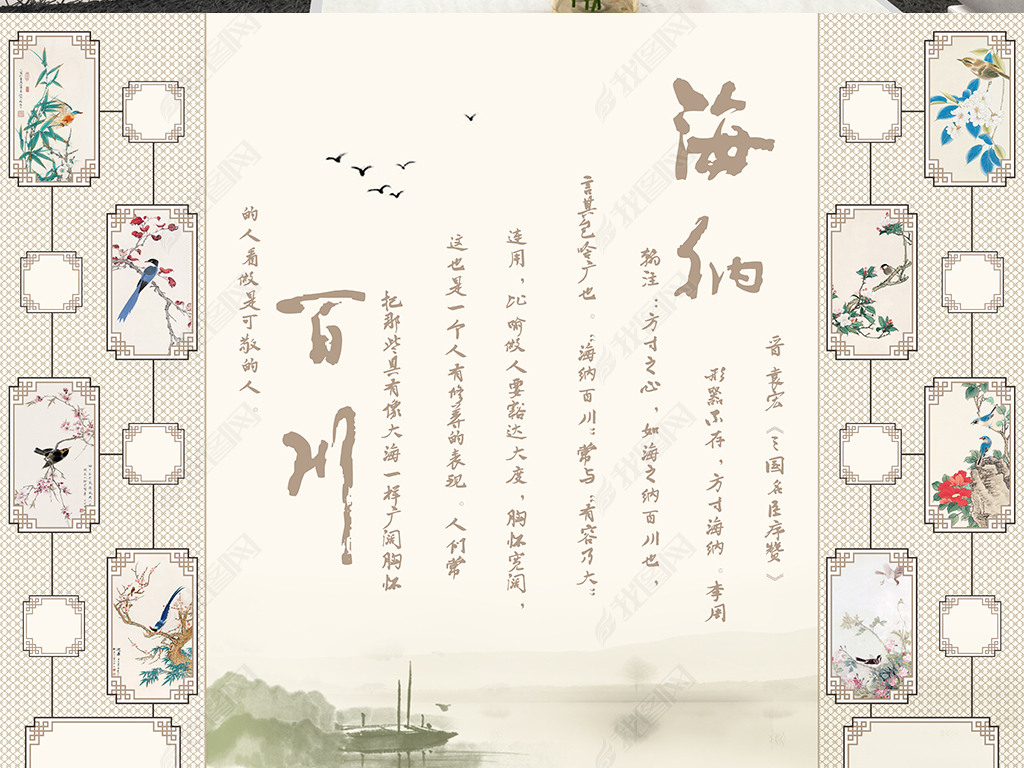 海纳
百川
晋 袁宏《三国名臣序赞》
形器不存,方寸海纳。李周
翰注:方寸之心,如海之纳百川也,
言其包唅广也。“海纳百川”常与“有容乃大”
连用,比喻做人要豁达大度,胸怀宽阔,
这也是一个人有修养的表现。人们常
把那些具有像大海一样广阔胸怀
的人看做是可敬的人。